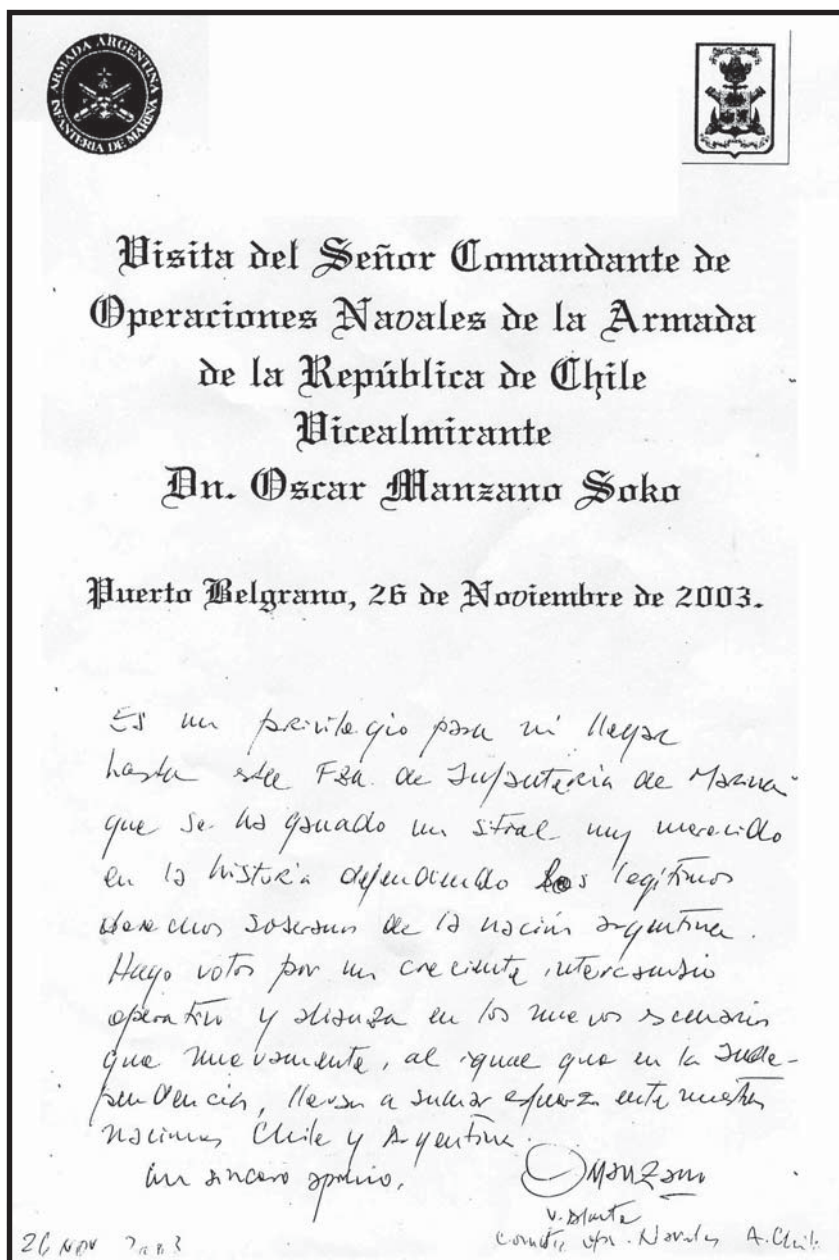 ARMADA ARGENTINA
INFANTERIA DE MARINA
Visita del Señor Comandante de
Operaciones Navales de la Armada
de la República de Chile
Vicealmirante
Dn. Oscar Manzano Soko
Puerto Belgrano, 26 de Noviembre de 2003.
Es un privilegio para mi llegar
hasta esta Fza. de Infantería de Marina
que se ha ganado un sitial muy merecido
en la historia defendiendo los legítimos
derechos soberanos de la nación argentina.
Hago votos por un creciente intercambio
operativo y alianza en los nuevos escenarios
que nuevamente, al igual que en la Inde-
pendencia, llevan a sumar esfuerzos entre nuestras
naciones Chile y Argentina.
Un sincero aprecio,
OManzano
V. Almte
Comdte. Ops. Navales A. Chile
26 NOV 2003